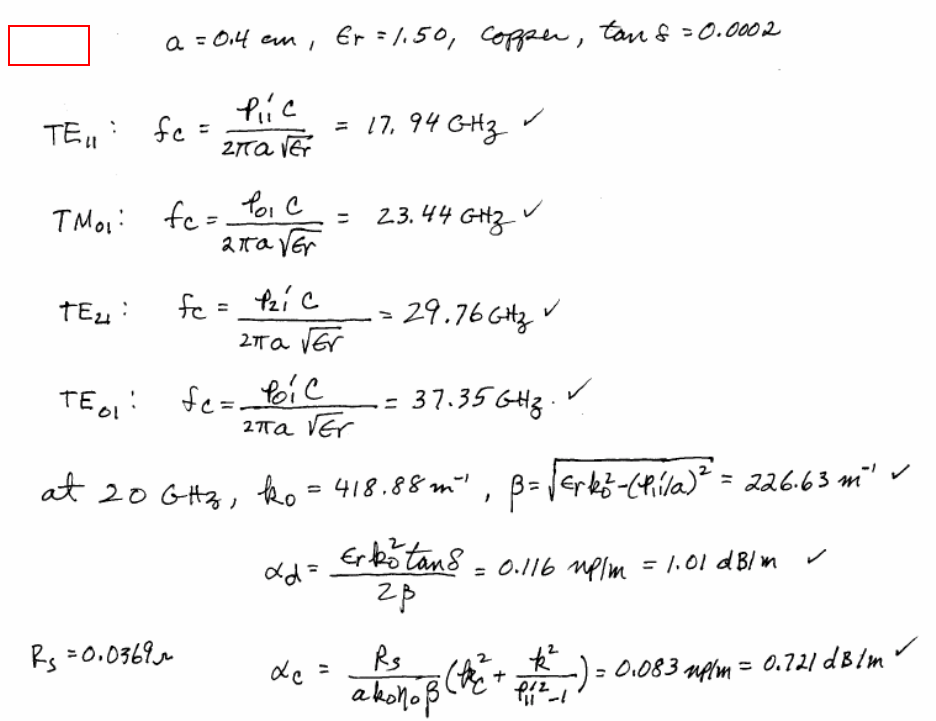 a = 0.4 cm, εr = 1.50, copper, tan δ = 0.0002
TE₁₁: fc = p₁₁′ c / 2πa √εr = 17.94 GHz ✓
TM₀₁: fc = p₀₁ c / 2πa √εr = 23.44 GHz ✓
TE₂₁: fc = p₂₁′ c / 2πa √εr = 29.76 GHz ✓
TE₀₁: fc = p₀₁′ c / 2πa √εr = 37.35 GHz. ✓
at 20 GHz, k₀ = 418.88 m⁻¹, β = √(εr k₀² − (p₁₁′/a)²) = 226.63 m⁻¹ ✓
αd = εr k₀² tan δ / 2β = 0.116 np/m = 1.01 dB/m ✓
Rs = 0.0369 Ω αc = Rs / a k₀ η₀ β (kc² + k² / p₁₁′² − 1) = 0.083 np/m = 0.721 dB/m ✓